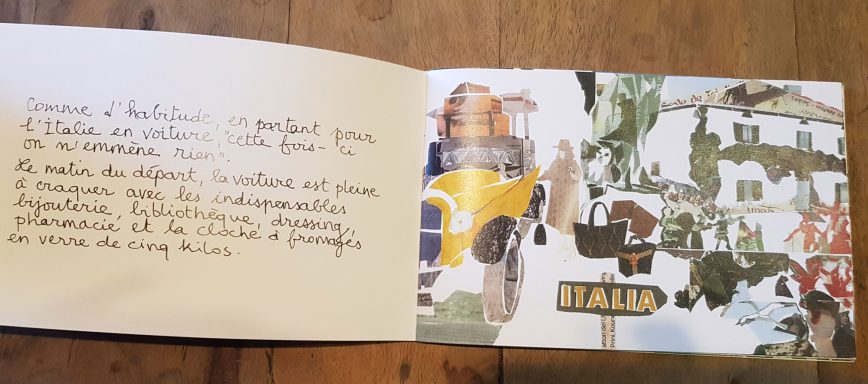 Comme d'habitude, en partant pour
l'Italie en voiture, "cette fois-ci
on n'emmène rien".
Le matin du départ, la voiture est pleine
à craquer avec les indispensables
bijouterie, bibliothèque, dressing,
pharmacie et la cloche à fromages
en verre de cinq kilos.
ITALIA